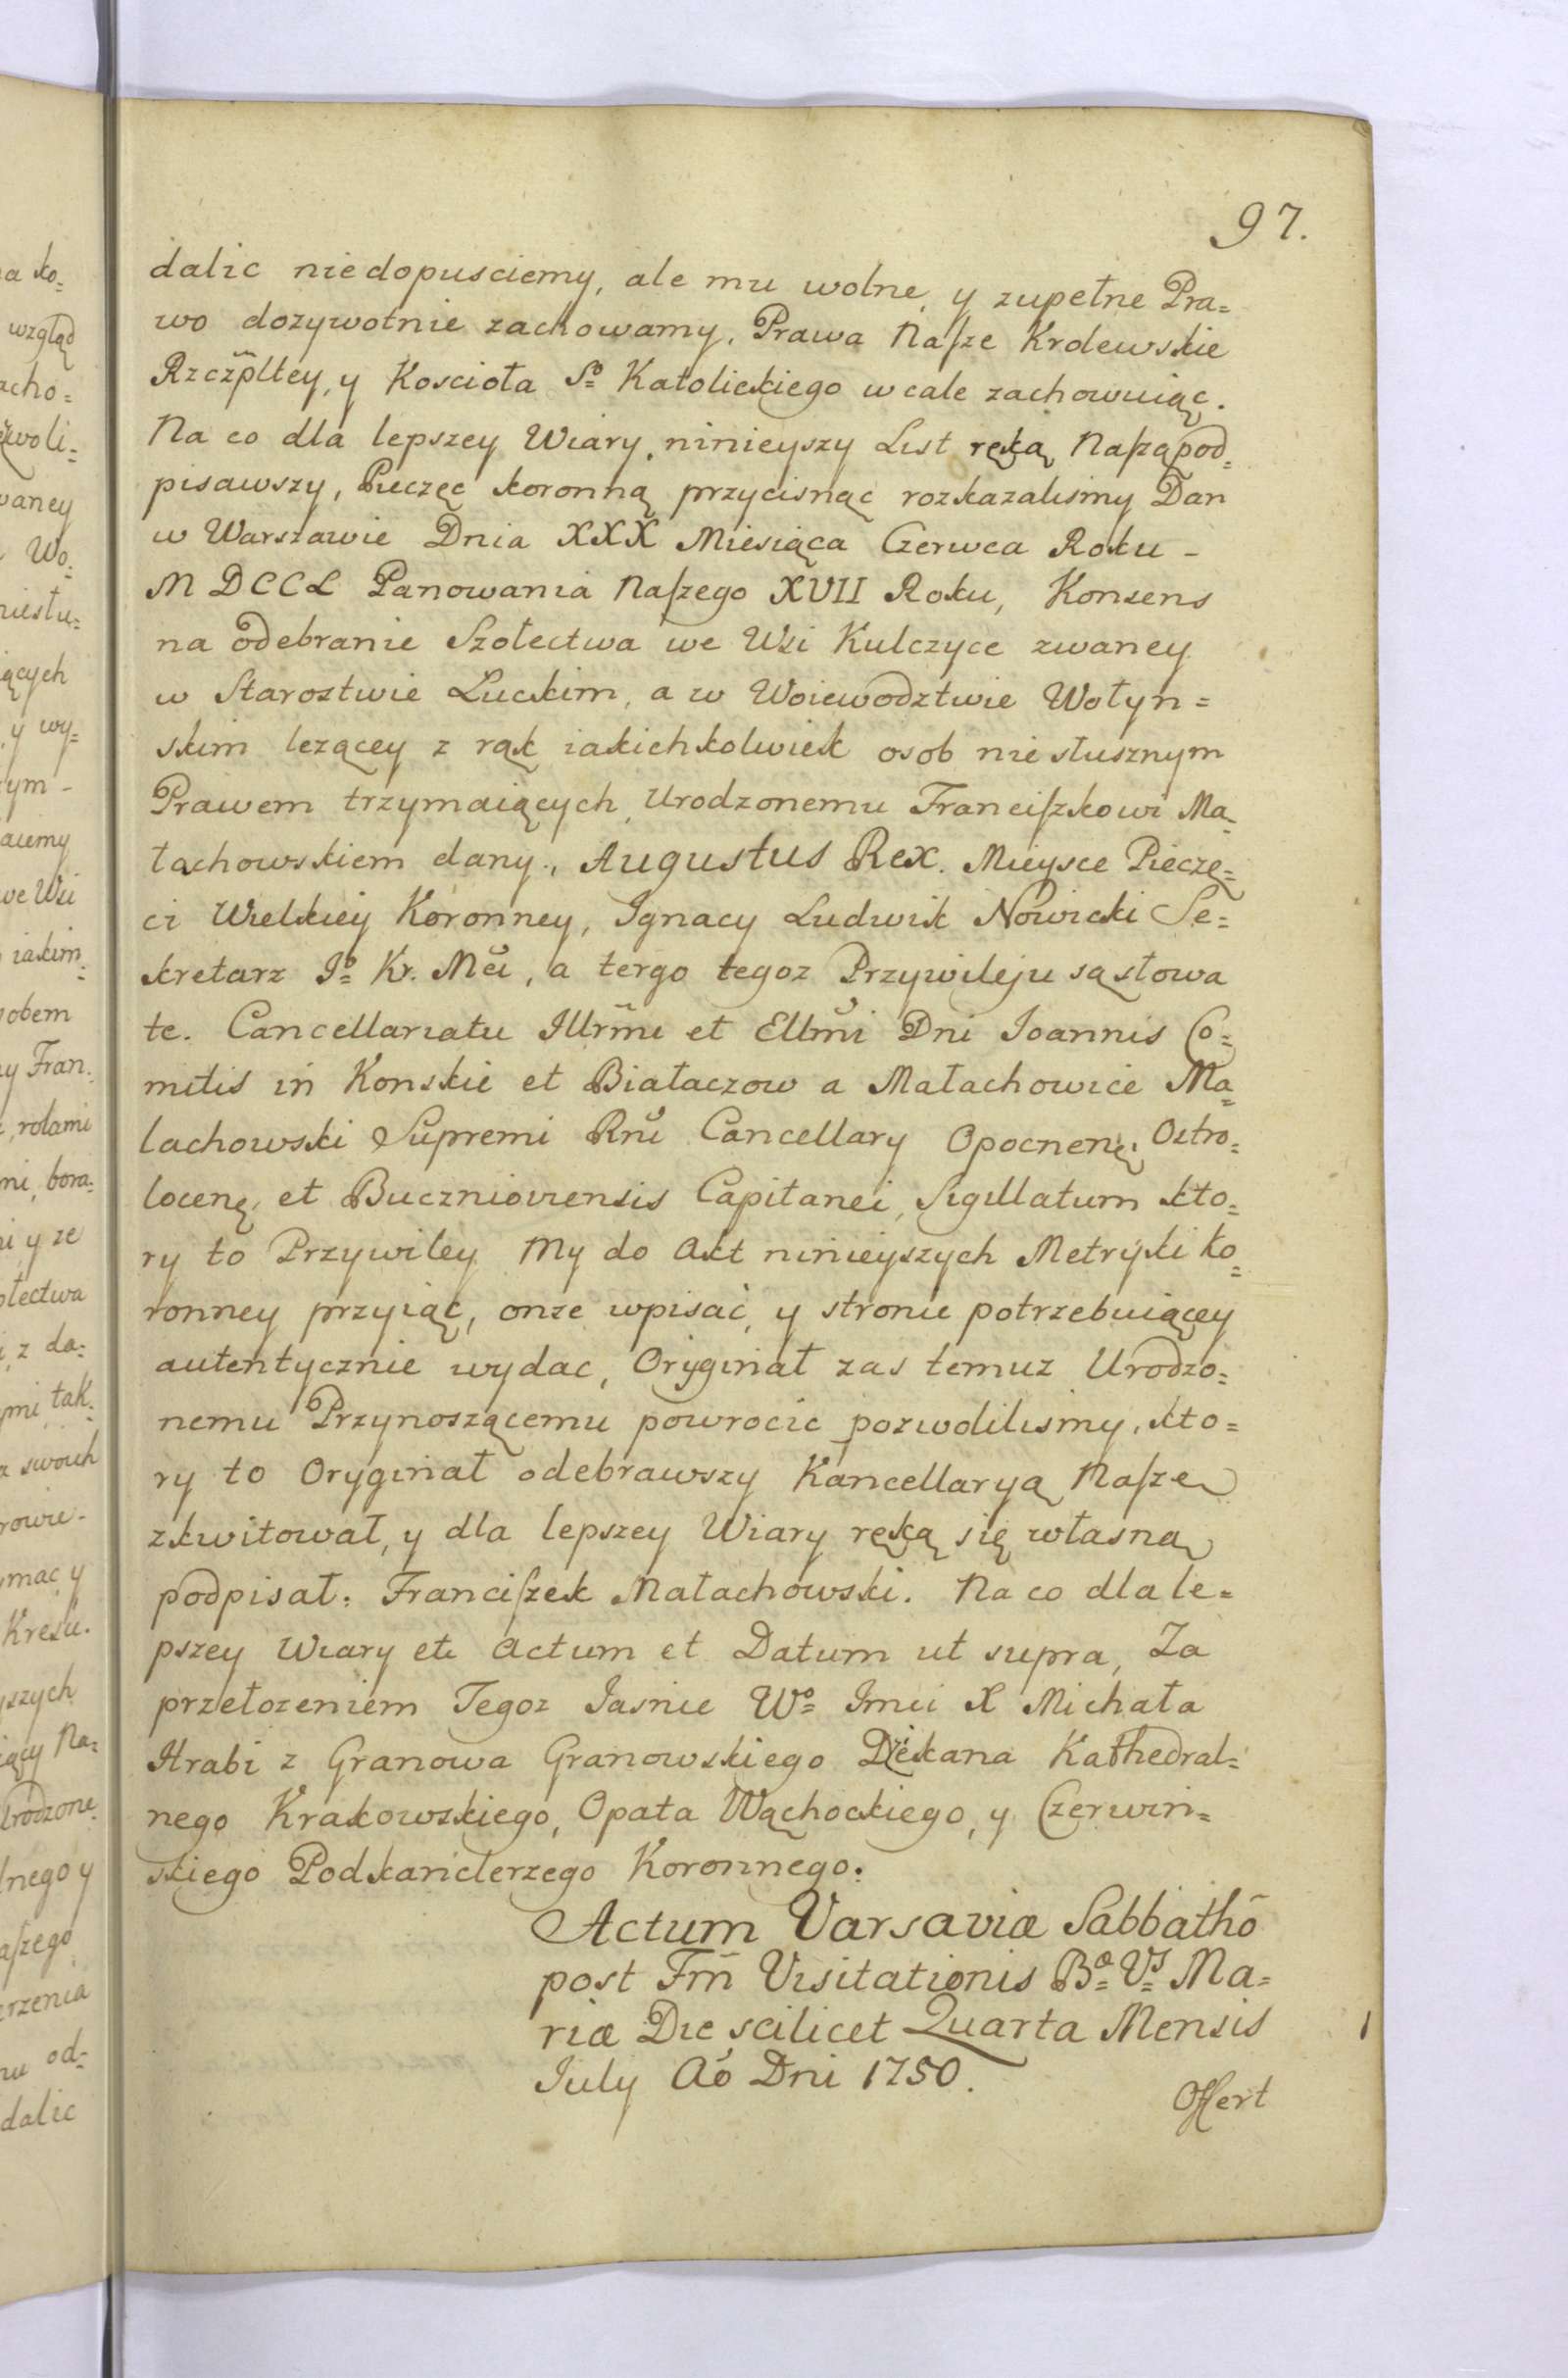 97.
dalic niedopusciemy, ale mu wolne y zupełne Pra=
wo dozywotnie zachowamy, Prawa Naſze Krolewskie
Rzczpltey, y Koscioła So Katolickiego w cale zachowuiąc.
Na co dla lepszey Wiary, ninieyszy List ręką Naſzą pod=
pisawszy, Pieczęc koronną przycisnąc rozkazalismy Dan
w Warszawie Dnia XXX Miesiąca Czerwca Roku -
MDCCL Panowania Naſzego XVII Roku, Konsens
na odebranie Szołectwa we Wsi Kulczyce zwaney
w Starostwie Luckim, a w Woiewodztwie Wołyn=
skim lezącey z rąk iakichkolwiek osob niesłusznym
Prawem trzymaiących, Urodzonemu Franciſzkowi Ma=
łachowskiem dany., Augustus Rex. Mieysce Pieczę=
ci Wielkiey Koronney, Ignacy Ludwik Nowicki Se=
kretarz Jo Kr. Mci, a tergo tegoz Przywileju są słowa
te. Cancellariatu Illrmi et Ellmi Dni Ioannis Co=
mitis in Konskie et Białaczow a Małachowice Ma=
lachowski Supremi Rni Cancellary Opocnenę, Ostro=
locenę, et Bucznioviensis Capitanei, Sigillatum kto=
ry to Przywiley My do Akt ninieyszych Metryki Ko=
ronney przyiąć, onze wpisać, y stronie potrzebuiącey
autentycznie wydac, Oryginał zas temuz Urodzo=
nemu Przynoszącemu powrocic pozwolilismy, kto=
ry to Oryginał odebrawszy Kancellaryą Naſzę
zkwitował, y dla lepszey Wiary ręką się własną
podpisał: Franciſzek Małachowski. Na co dla le=
pszey Wiary etc Actum et Datum ut supra, Za
przełozeniem Tegoz Iasnie Wo Imci X Michała
Hrabi z Granowa Granowskiego Dziekana Kathedral=
nego Krakowskiego, Opata Wąchockiego, y Czerwin=
skiego Podkanclerzego Koronnego.
Actum Varsaviæ Sabbathō
post Fm̄ Visitationis Bæ Vs Ma=
riæ Die scilicet Quarta Mensis
July Aō Dni 1750.
Offert